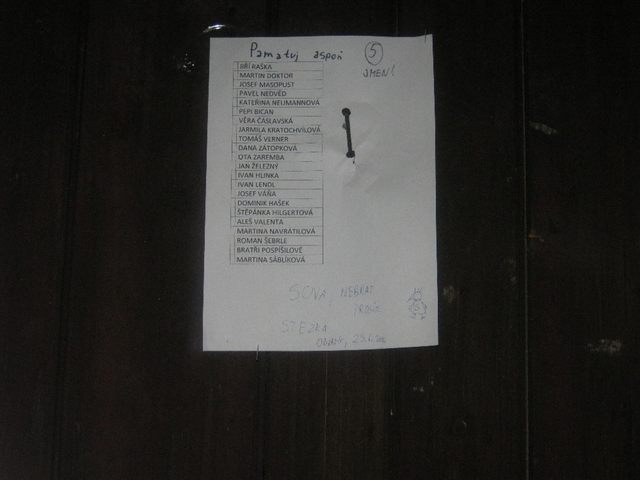 Pamatuj aspoň 5
JMEN!
JIŘÍ RAŠKA
MARTIN DOKTOR
JOSEF MASOPUST
PAVEL NEDVĚD
KATEŘINA NEUMANNOVÁ
PEPI BICAN
VĚRA ČÁSLAVSKÁ
JARMILA KRATOCHVÍLOVÁ
TOMÁŠ VERNER
DANA ZÁTOPKOVÁ
OTA ZAREMBA
JAN ŽELEZNÝ
IVAN HLINKA
IVAN LENDL
JOSEF VÁŇA
DOMINIK HAŠEK
ŠTĚPÁNKA HILGERTOVÁ
ALEŠ VALENTA
MARTINA NAVRÁTILOVÁ
ROMAN ŠEBRLE
BRATŘI POSPÍŠILOVÉ
MARTINA SÁBLÍKOVÁ
SOVA, NEBRAT
STEZKA